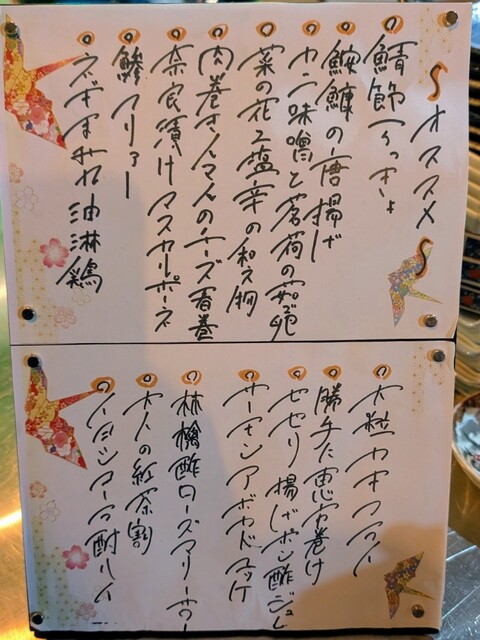 オススメ
鯖節てっさい
鮟鱇の唐揚げ
カニ味噌と茗荷の
菜の花と塩辛の和え物
肉巻きんマんのチーズ春巻
奈良漬けマスカルポーネ
鯵マリナー
ネギまみれ油淋鶏
大粒カキフライ
勝手に恵方巻け
セセリ揚げポン酢ジュレ
サーモンアボカドユッケ
林檎酢ローズマリーサワー
大人の紅茶割
酎ハイ